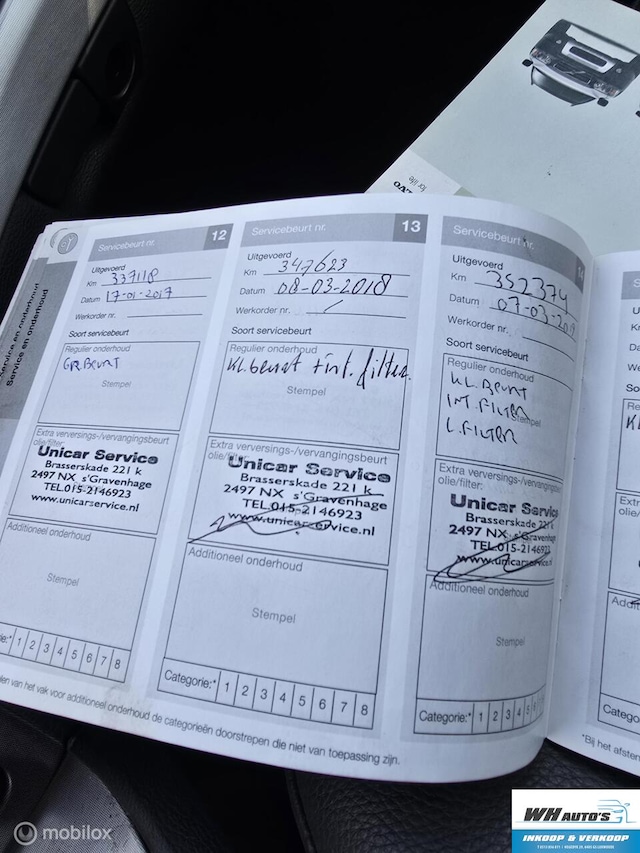 for life
Service en onderhoud
Service en onderhoud
Servicebeurt nr. 12
Uitgevoerd
Km 337118
Datum 17-01-2017
Werkorder nr.
Soort servicebeurt
Regulier onderhoud
GR. BEURT
Stempel
Extra verversings-/vervangingsbeurt
olie/filter:
Unicar Service
Brasserskade 221 k
2497 NX s'Gravenhage
TEL.015-2146923
www.unicarservice.nl
Additioneel onderhoud
Stempel
1 2 3 4 5 6 7 8
Servicebeurt nr. 13
Uitgevoerd
Km 347623
Datum 08-03-2018
Werkorder nr.
Soort servicebeurt
Regulier onderhoud
KL. beurt + int. filter.
Stempel
Extra verversings-/vervangingsbeurt
olie/filter:
Unicar Service
Brasserskade 221 k
2497 NX s'Gravenhage
TEL.015-2146923
www.unicarservice.nl
Additioneel onderhoud
Stempel
Categorie:* 1 2 3 4 5 6 7 8
Servicebeurt nr.
Uitgevoerd
Km 352374
Datum 07-03-201
Werkorder nr.
Soort servicebeurt
Regulier onderhoud
KL. BEURT
INT. FILTER
L. FILTER
Stempel
Extra verversings-/vervangingsbeurt
olie/filter:
Unicar Service
Brasserskade 221 k
2497 NX s'Gravenhage
TEL.015-2146923
www.unicarservice.nl
Additioneel onderhoud
Stempel
Categorie:* 1 2 3 4 5
van het vak voor additioneel onderhoud de categorieën doorstrepen die niet van toepassing zijn.
Km
Categorie
*Bij het afste
mobilox
WH AUTO'S
INKOOP & VERKOOP